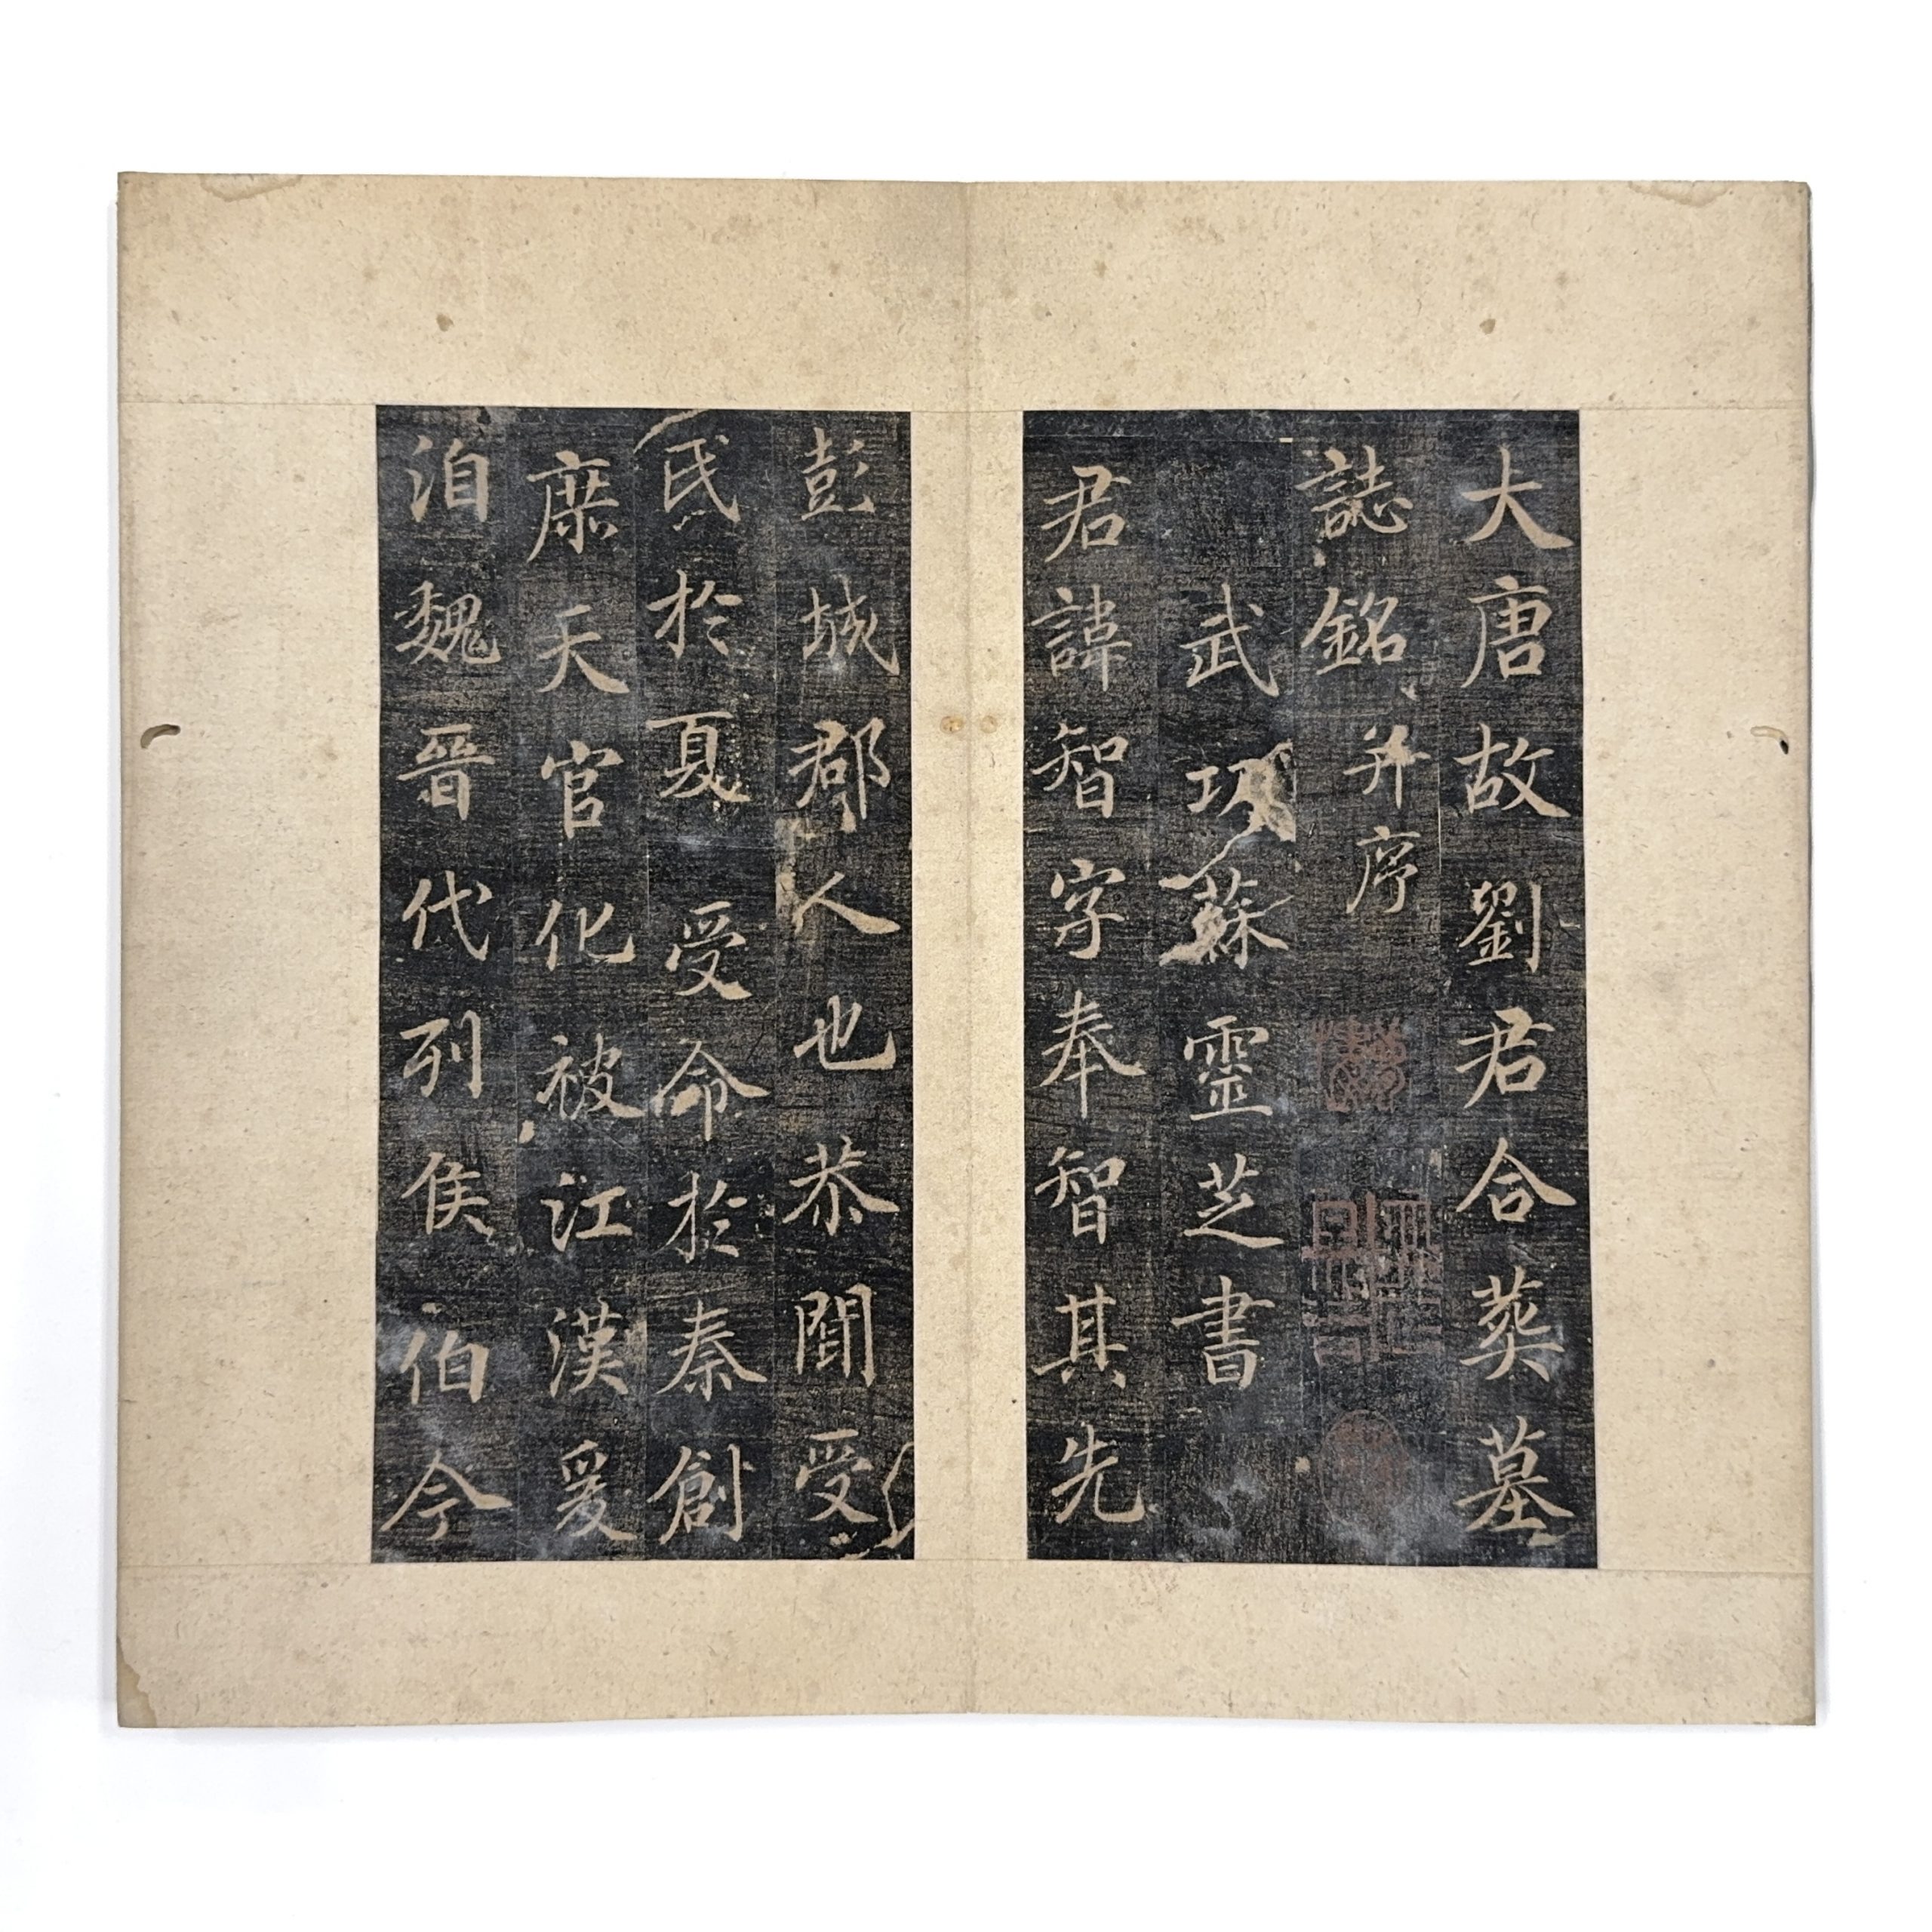 大唐故劉君合葬墓
誌銘并序
武功蘇靈芝書
君諱智字奉智其先
彭城郡人也恭聞受
氏於夏受命於秦創
庶天官化被江漢爰
洎魏晉代列侯伯今